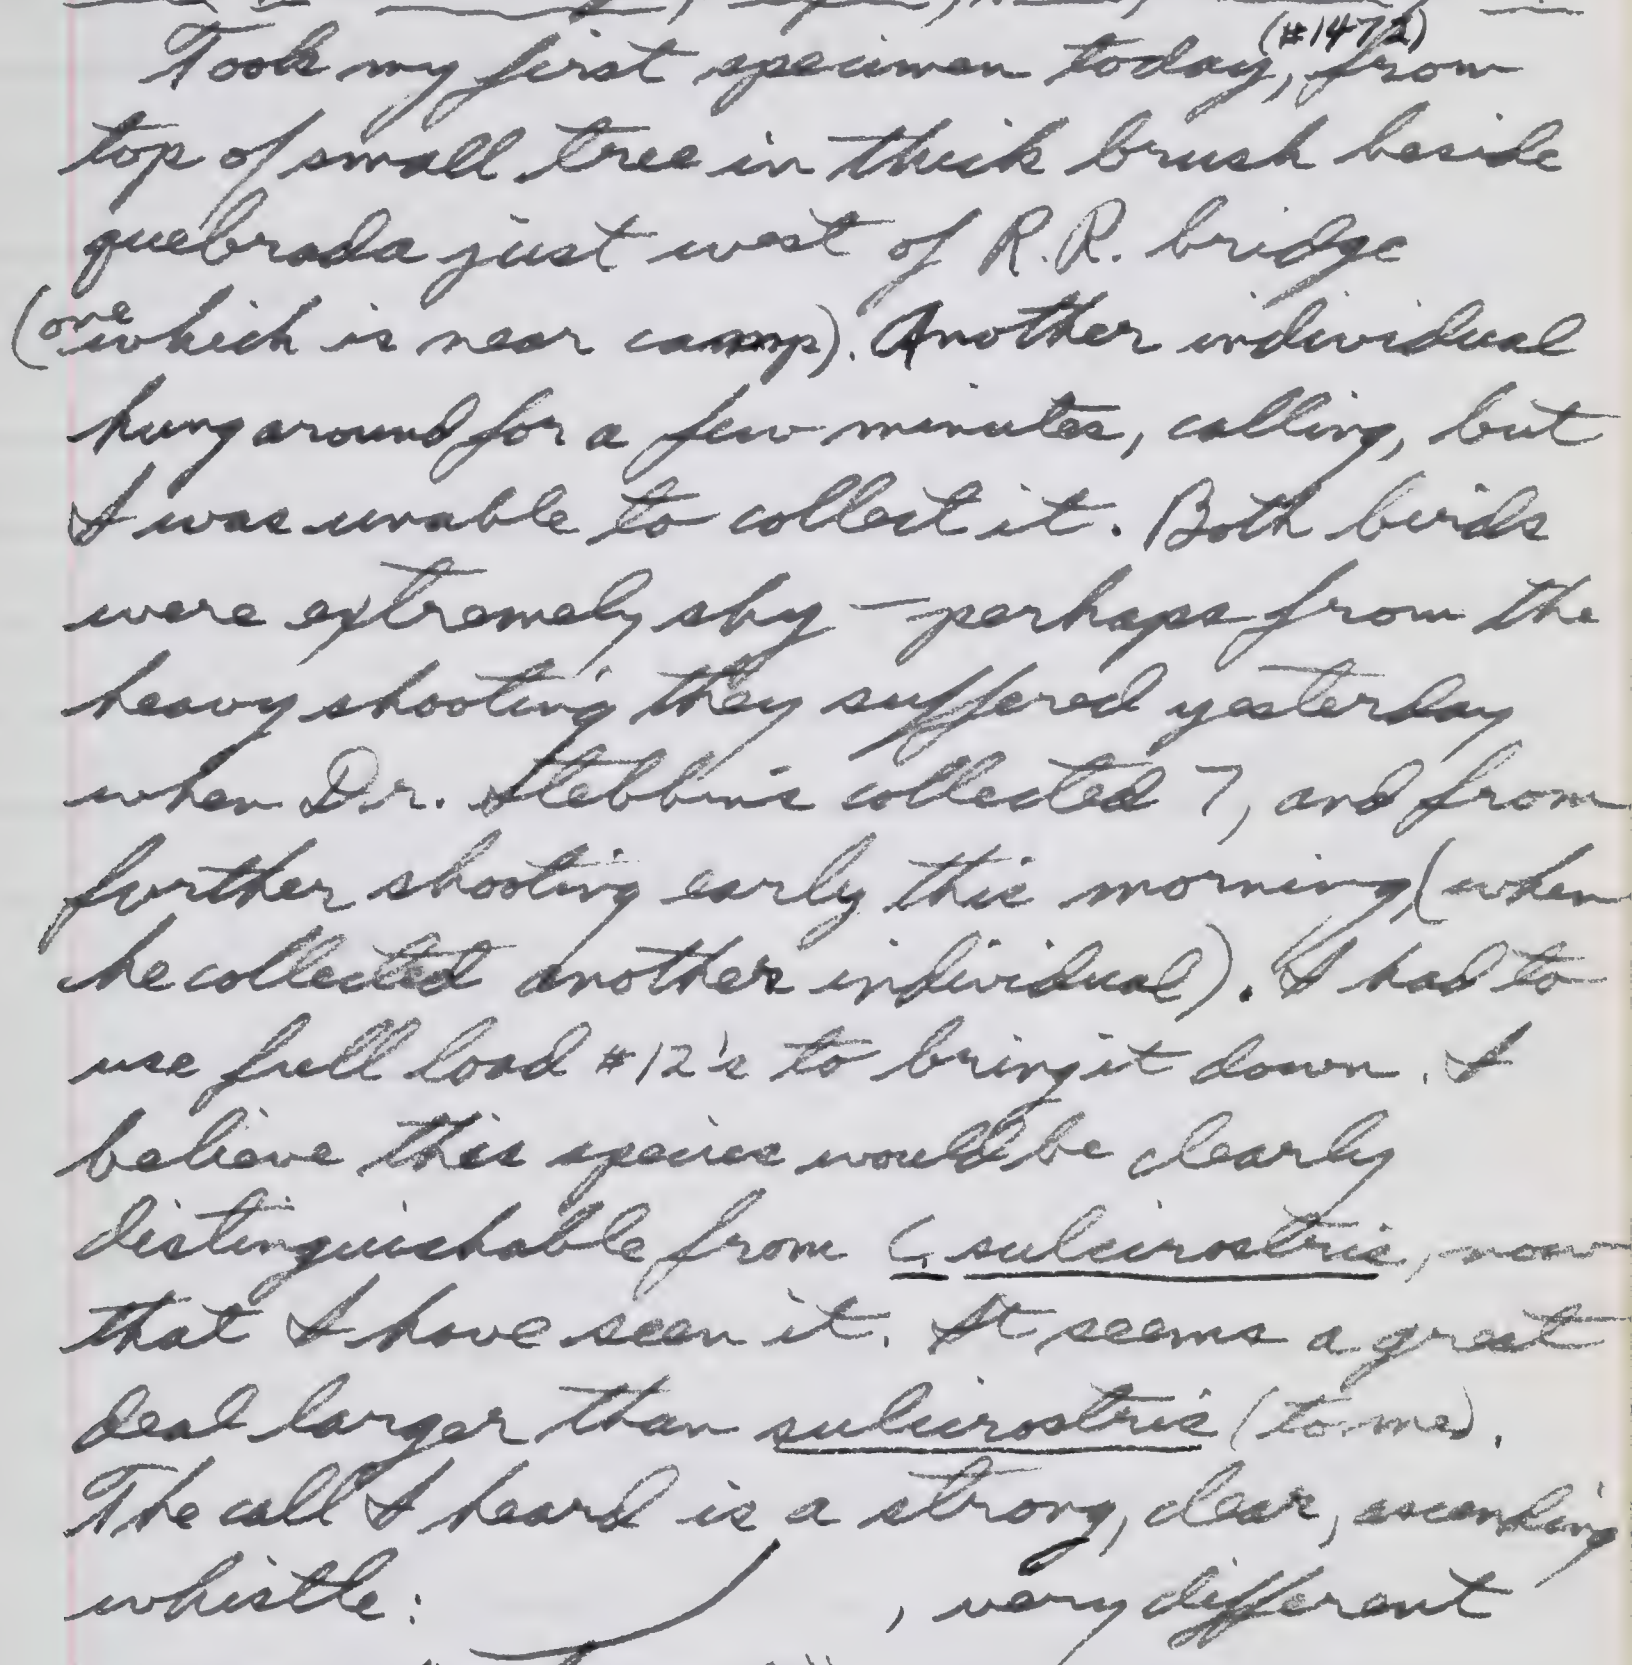 (#1472)
Took my first specimen today, from
top of small tree in thick brush beside
quebrada just west of R.R. bridge
(one which is near camp). Another individual
hung around for a few minutes, calling, but
I was unable to collect it. Both birds
were extremely shy – perhaps from the
heavy shooting they suffered yesterday
when Dr. Stebbins collected 7, and from
further shooting early this morning, (when
he collected another individual). I had to
use full load #12's to bring it down. I
believe this species would be clearly
distinguishable from C. sulcirostris, now
that I have seen it. It seems a great
deal larger than sulcirostris (to me).
The call I heard is a strong, clear, ascending
whistle: , very different